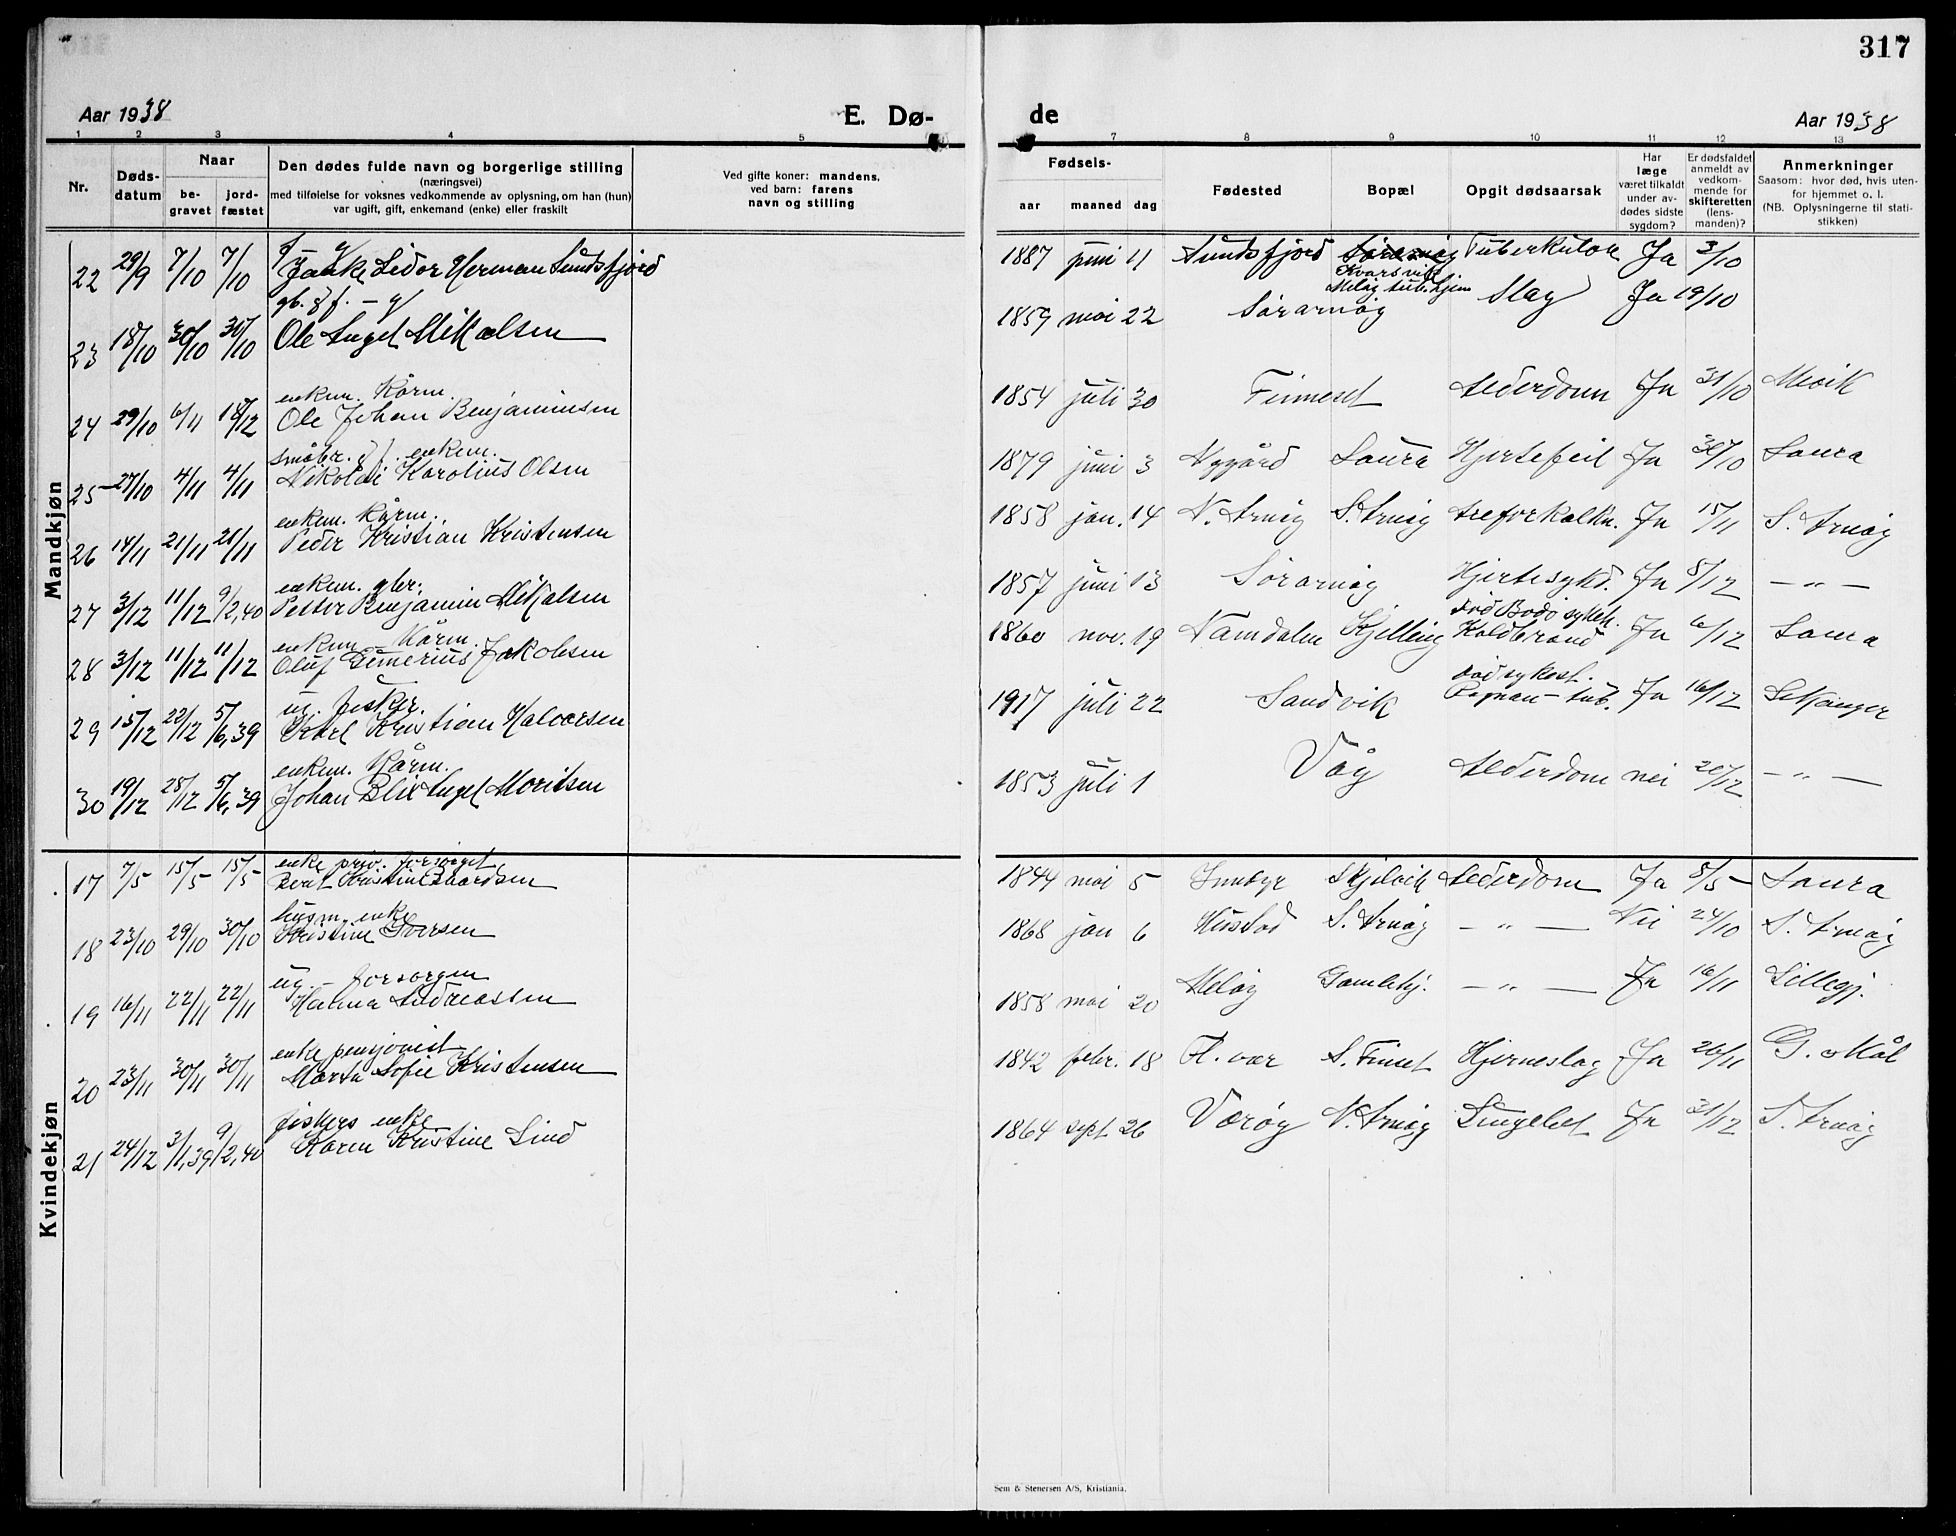 317
Aar 1938 E. Dø- de Aar 1938
1 2 3 4 5 7 8 9 10 11 12 13
Nr. Døds-datum Naar be-gravet jord-fæstet Den dødes fulde navn og borgerlige stilling (næringsvei) med tilføielse for voksnes vedkommende av oplysning, om han (hun) var ugift, gift, enkemand (enke) eller fraskilt Ved gifte koner: mandens, ved barn: farens navn og stilling Fødsels- aar maaned dag Fødested Bopæl Opgit dødsaarsak Har læge været tilkaldt under av-dødes sidste sygdom? Er dødsfaldet anmeldt av vedkom-mende for skifteretten (lens-manden)? Anmerkninger Saasom: hvor død, hvis uten-for hjemmet o. l. (NB. Oplysningerne til stati-stikken)
Mandkjøn
22 29/9 7/10 7/10 Lidor Herman Sundsfjord 1887 juni 11 Sundsfjord Sørarnøy Kvarsvik Meløy tub.hjem Tuberkulose Ja 3/10
23 18/10 30/10 30/10 gb. & f. - g/ Ole Inget Mikalsen 1859 mai 22 Sørarnøy Slag Ja 19/10
24 29/10 6/11 18/12 enkem. Kårm. Ole Johan Benjaminsen 1854 juli 30 Finneset Alderdom Ja 31/10 Mevik
25 27/10 4/11 4/11 småbr. & f. enkem. Nikolai Karolius Olsen 1879 juni 3 Nygård Saura Hjertefeil Ja 30/10 Saura
26 14/11 21/11 21/11 enkem. Kårm. Peder Kristian Kristensen 1858 jan. 14 N. Arnøy S. Arnøy Areforkalkn. Ja 15/11 S. Arnøy
27 3/12 11/12 9/2,40 enkem. gbr. Petter Benjamin Mikalsen 1857 juni 13 Sørarnøy Hjertesykd. Ja 8/12 - " -
28 3/12 11/12 11/12 enkem. Kårm. Oluf Jakobsen 1860 nov. 19 Namdalen Kjelling død Bodø sykeh. Koldbrand Ja 6/12 Saura
29 15/12 22/12 5/6,39 ug. fisker. Karl Kristian Halvorsen 1917 juli 22 Sandvik død sykest. Rognan - tub. Ja 16/12 Selkånger
30 19/12 28/12 5/6,39 enkem. Kårm. Johan Blix Angel Moritsen 1853 juli 1 Våg Alderdom nei 20/12 - " -
Kvindekjøn
17 7/5 15/5 15/5 enke priv. forsørget Berit Kristine Baardsen 1844 mai 5 Innbyr Skjelvik Alderdom Ja 8/5 Saura
18 23/10 29/10 30/10 husm. enke Kristine Iversen 1868 jan 6 Husstad S. Arnøy - " - Nei 24/10 S. Arnøy
19 16/11 22/11 22/11 ug - forsorgen Hanna Andreassen 1858 mai 20 Meløy Gamlehj. - " - Ja 16/11 Lillegj.
20 23/11 30/11 30/11 enke pensjonist Marta Sofie Kristensen 1842 febr. 18 Fl. vær S. Finset Hjerneslag Ja 26/11 G. skål
21 24/12 3/1,39 9/2,40 fiskers enke Karen Kristine Lind 1864 sept 26 Værøy N. Arnøy Lungebet Ja 31/12 S. Arnøy
Sem & Stenersen A/S, Kristiania.